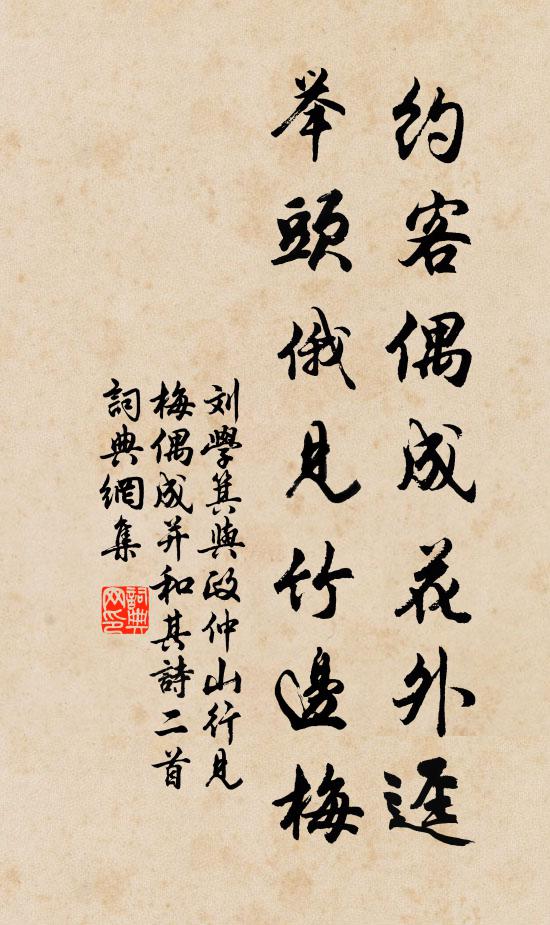 约客偶成花外逕
举頭俄见竹邊梅
刘學箕與政仲山行见
梅偶成并和其詩二首
詞典網集
詞典
网印